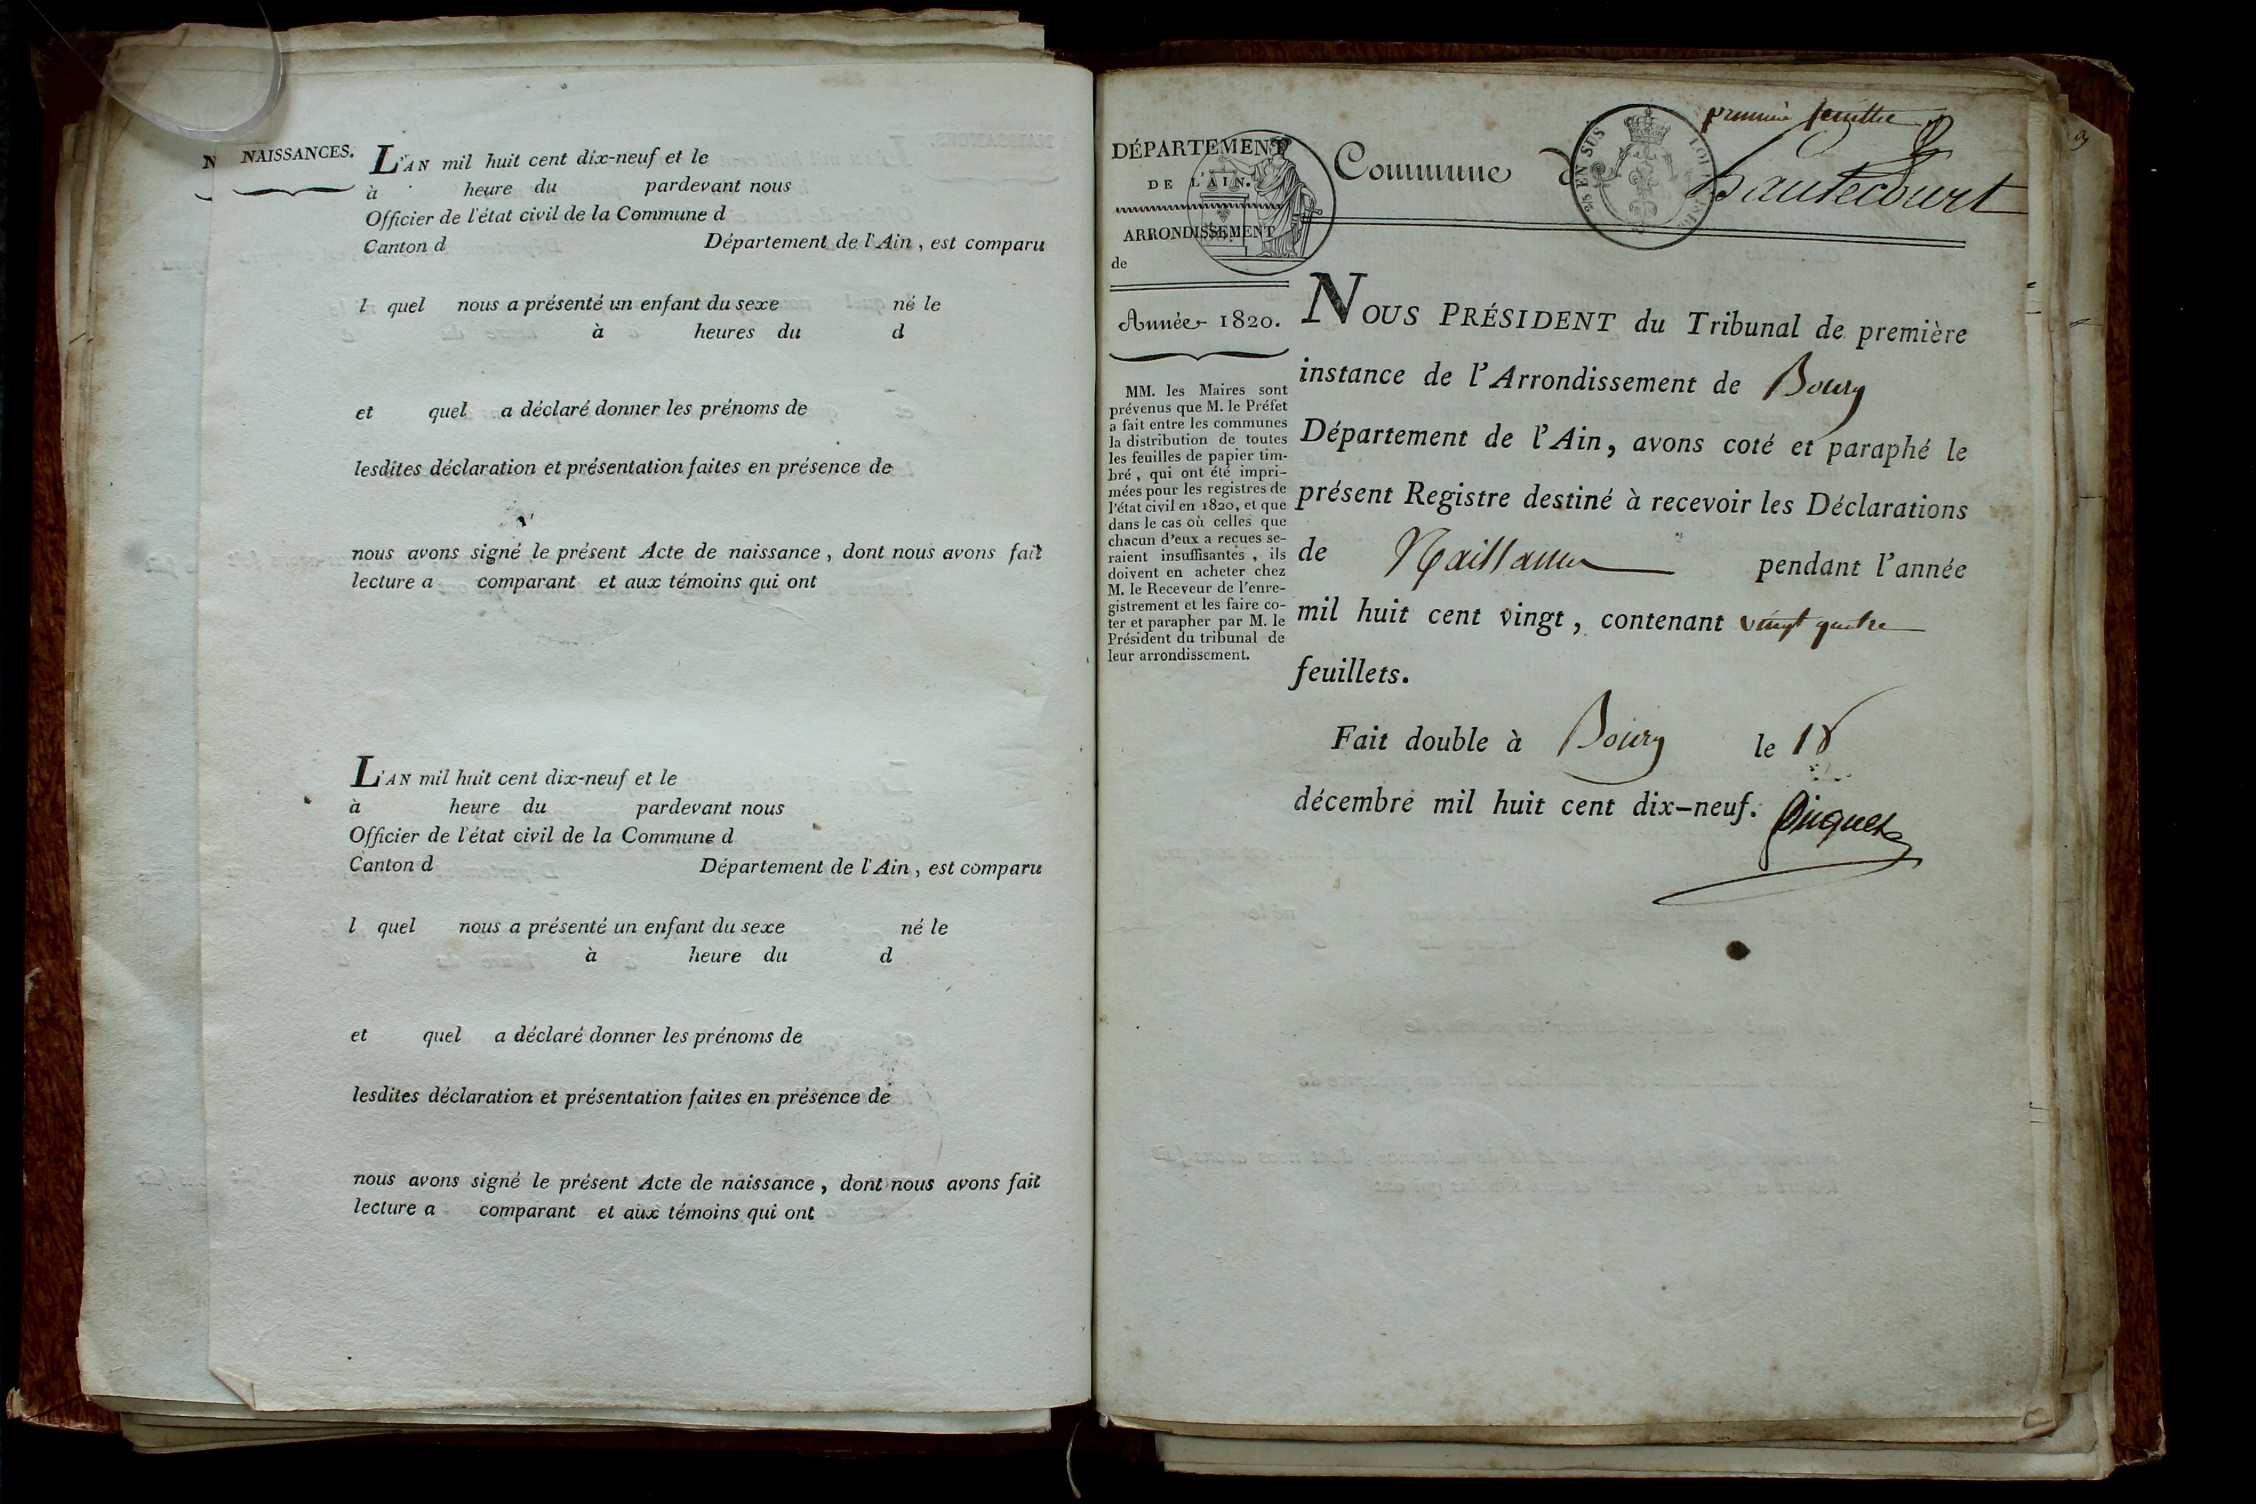 NAISSANCES.
L'AN mil huit cent dix-neuf et le
à heure du pardevant nous
Officier de l'état civil de la Commune d
Canton d Département de l'Ain, est comparu
l quel nous a présenté un enfant du sexe né le
à heures du d
et quel a déclaré donner les prénoms de
lesdites déclaration et présentation faites en présence de
nous avons signé le présent Acte de naissance, dont nous avons fait
lecture a comparant et aux témoins qui ont
L'AN mil huit cent dix-neuf et le
à heure du pardevant nous
Officier de l'état civil de la Commune d
Canton d Département de l'Ain, est comparu
l quel nous a présenté un enfant du sexe né le
à heure du d
et quel a déclaré donner les prénoms de
lesdites déclaration et présentation faites en présence de
nous avons signé le présent Acte de naissance, dont nous avons fait
lecture a comparant et aux témoins qui ont
premier feuillet
DÉPARTEMENT
DE L'AIN.
ARRONDISSEMENT
de
Commune d hautecourt
EN SUS
LOI
Année 1820.
MM. les Maires sont
prévenus que M. le Préfet
a fait entre les communes
la distribution de toutes
les feuilles de papier tim-
bré, qui ont été impri-
mées pour les registres de
l'état civil en 1820, et que
dans le cas où celles que
chacun d'eux a reçues se-
raient insuffisantes, ils
doivent en acheter chez
M. le Receveur de l'enre-
gistrement et les faire co-
ter et parapher par M. le
Président du tribunal de
leur arrondissement.
NOUS PRÉSIDENT du Tribunal de première
instance de l'Arrondissement de Bourg
Département de l'Ain, avons coté et paraphé le
présent Registre destiné à recevoir les Déclarations
de Naissance pendant l'année
mil huit cent vingt, contenant vingt quatre
feuillets.
Fait double à Bourg le 18
décembre mil huit cent dix-neuf.